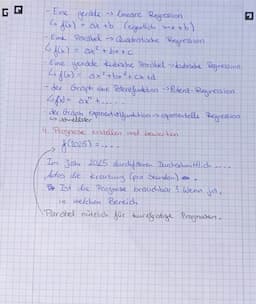 - Eine gerade → Lineare Regression
↳ f(x) = ax + b (eigentlich mx + b)
- Eine Parabel → Quadratische Regression
↳ f(x) = ax² + bx + c
- Eine gerade kubische Parabel → kubische Regression
↳ f(x) = ax³ + bx² + cx + d
- der Graph eine Potenzfunktion → Potenz-Regression
↳ f(x) = ax^n + ....
der Graph Exponentialfunktion → exponentielle Regression
4. Prognose erstellen und bewerten
f(2025) = .....
Im Jahr 2025 durchfahren Durchschnittlich ....
Autos die Kreuzung (pro Stunden).
Ist die Prognose brauchbar? Wenn ja,
in welchem Bereich
Parabel nützlich für kurzfristige Prognosen.